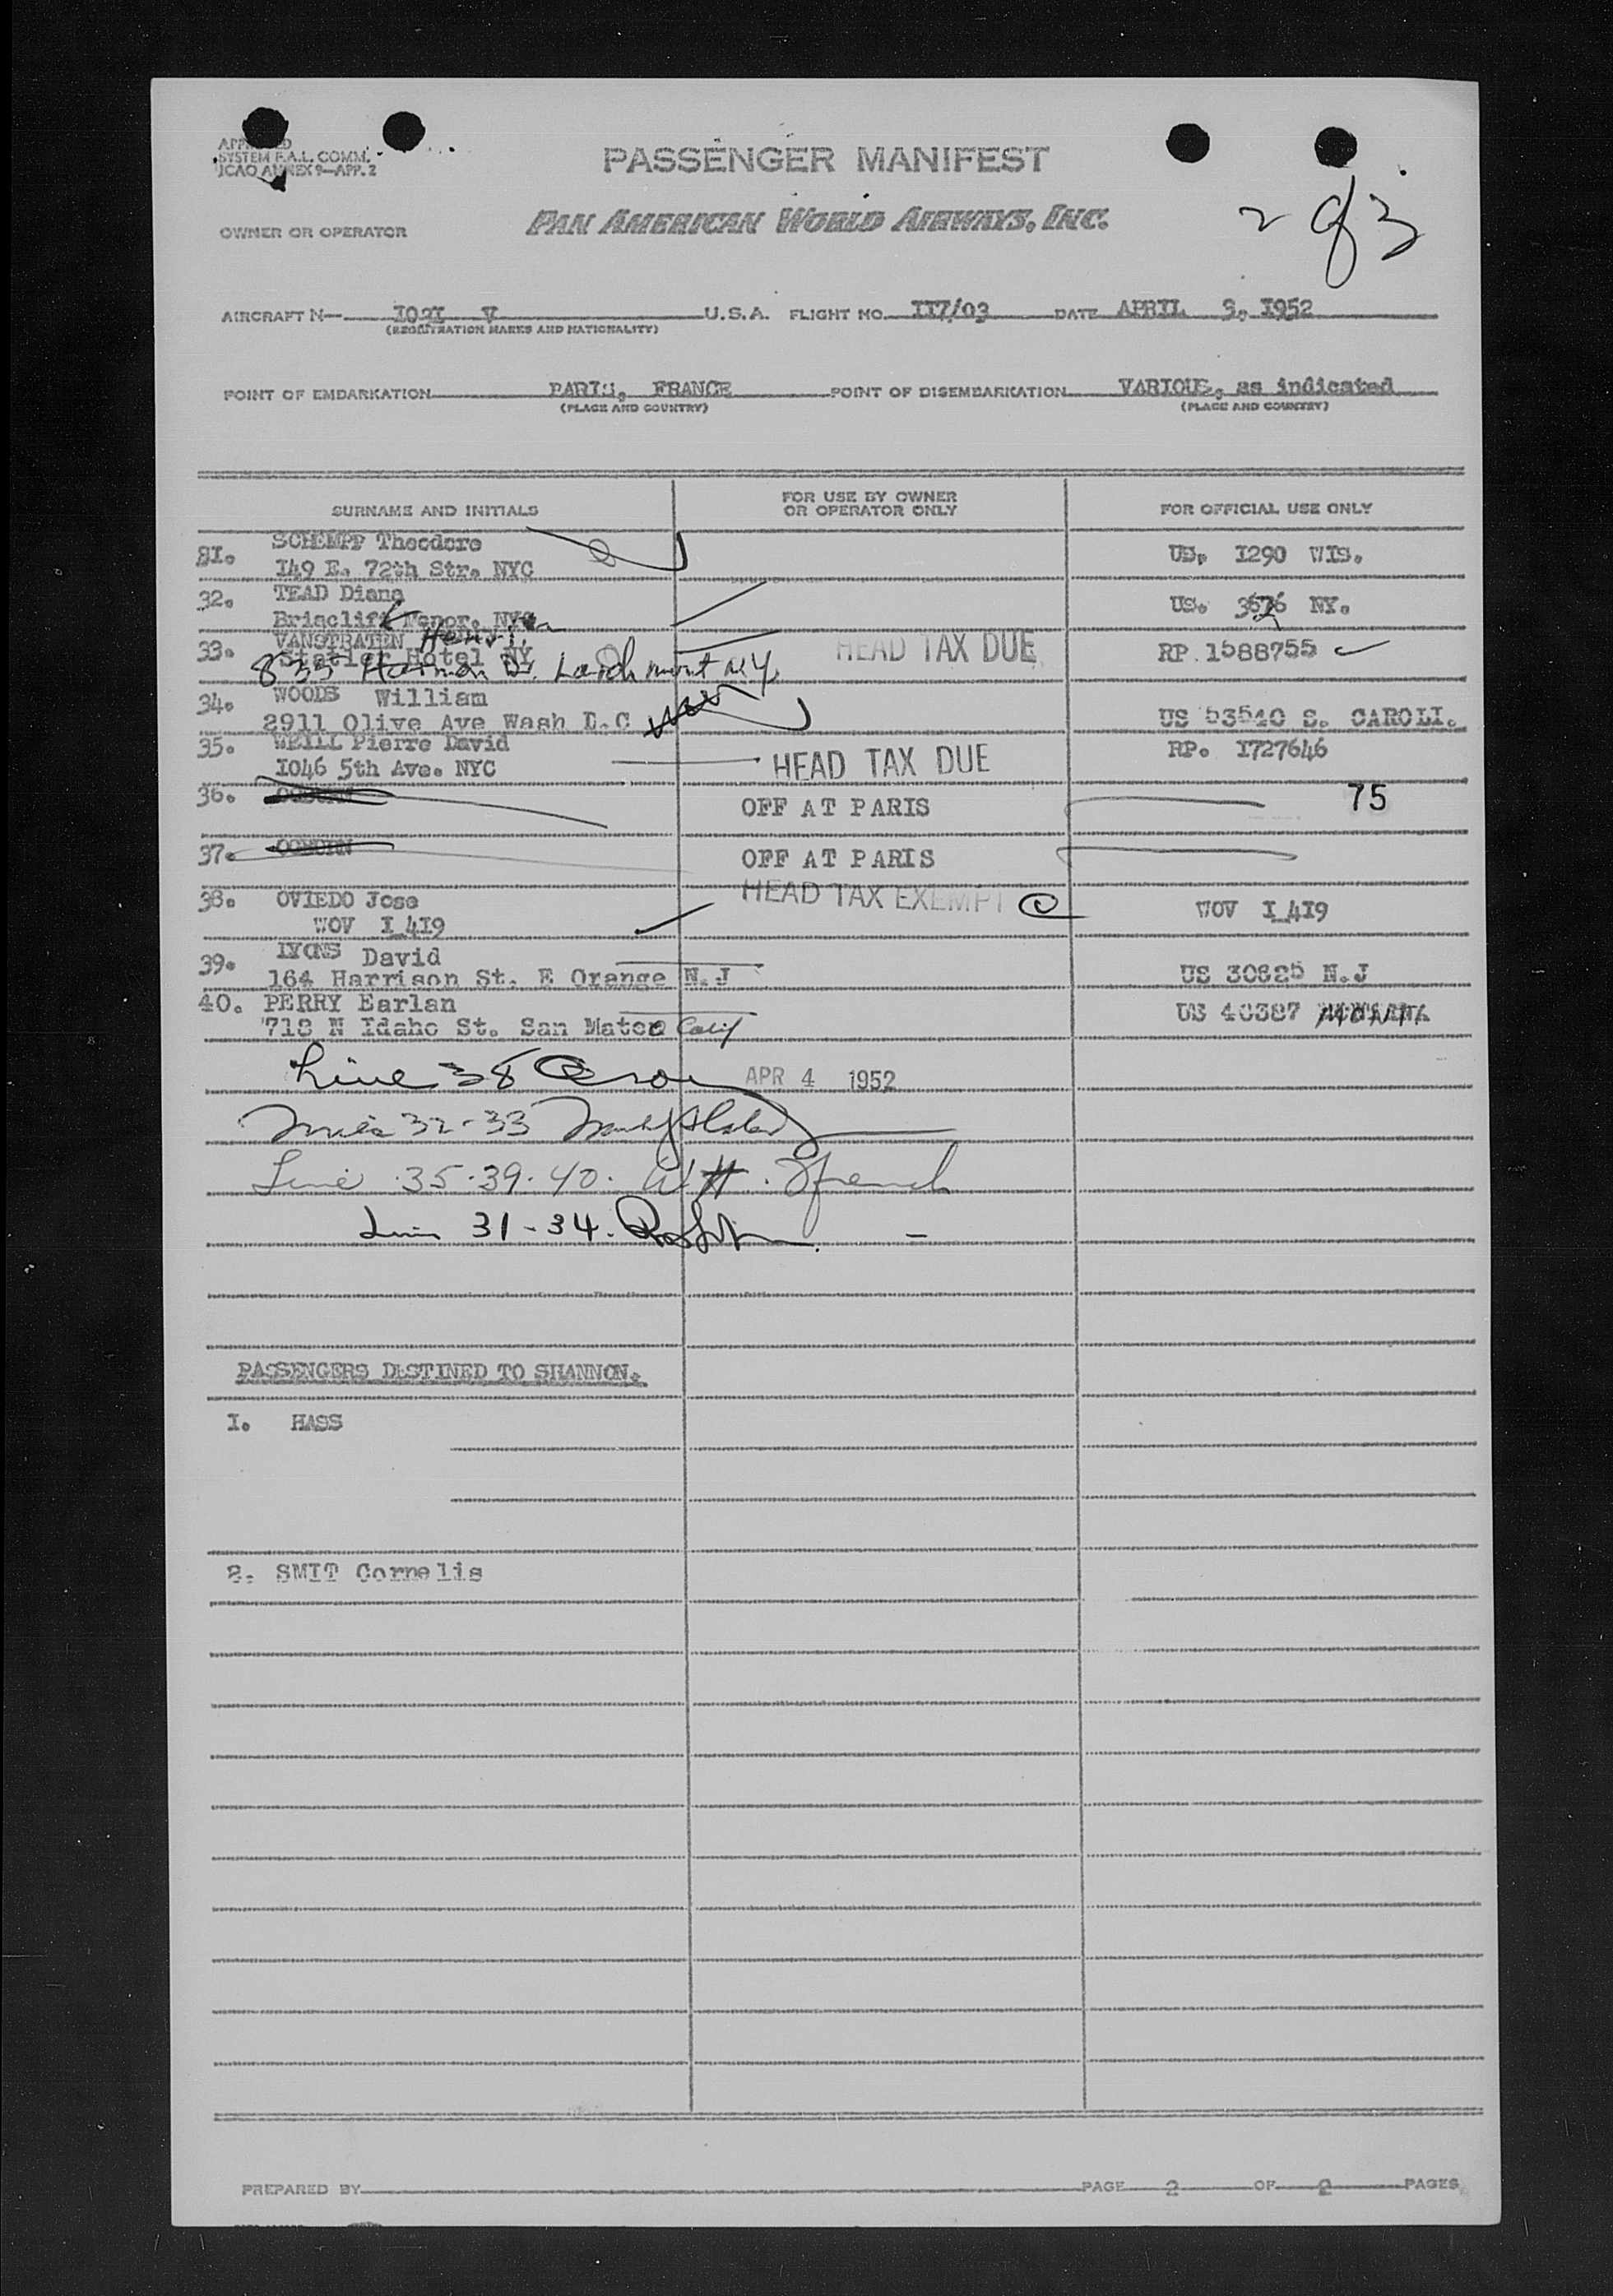 SYSTEM F.A.L. COMM.
ICAO ANNEX 9—APP. 2
PASSENGER MANIFEST
OWNER OR OPERATOR
PAN AMERICAN WORLD AIRWAYS, INC.
2 of 3
AIRCRAFT N— 1021 V U.S.A. FLIGHT NO. II7/03 DATE APRIL 3, I952
(REGISTRATION MARKS AND NATIONALITY)
POINT OF EMBARKATION PARIS, FRANCE POINT OF DISEMBARKATION VARIOUS, as indicated
(PLACE AND COUNTRY) (PLACE AND COUNTRY)
SURNAME AND INITIALS FOR USE BY OWNER OR OPERATOR ONLY FOR OFFICIAL USE ONLY
31. SCHEMPP Theodore US. I290 WIS.
I49 E. 72th Str. NYC
32. TEAD Diana US. NY.
Briacliff Menor. NY
33. VANSTRATEN Henri HEAD TAX DUE RP 1588755
Statler Hotel NY
835 Dr. Larchmont N.Y.
34. WOODS William
2911 Olive Ave Wash D.C US 53540 S. CAROLI.
35. WEILL Pierre David RP. I727646
I046 5th Ave. NYC HEAD TAX DUE
36. OGBURN OFF AT PARIS 75
37. OGBURN OFF AT PARIS
38. OVIEDO Jose HEAD TAX EXEMPT WOV I_4I9
WOV I_4I9
39. LYONS David
164 Harrison St. E Orange N.J US 30825 N.J
40. PERRY Earlan US 40387
718 N Idaho St. San Mateo Calif
Line 38 APR 4 1952
32-33
Line 35-39-40.
31-34.
PASSENGERS DESTINED TO SHANNON.
I. HASS
2. SMIT Cornelis
PREPARED BY PAGE 2 OF 2 PAGES